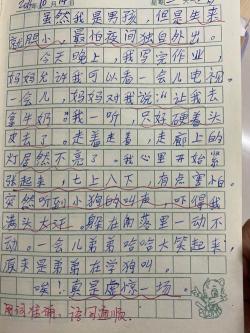 虽然我是男孩,但是生来
就胆小,最怕夜间独自外出。
今天晚上,我写完作业,
妈妈允许我可以看一会儿电视。
一会儿,妈妈对我说:“让我去
拿牛奶。”我一听,只好硬着头
皮去了。走着走着,走廊上的
灯居然不亮了。我心里开始紧
张起来,七上八下,有点害怕。
突然听到小狗的叫声,吓得我
满头大汗。躲在角落里一动不
动。一会儿弟弟哈哈大笑起来,
原来是弟弟在学狗叫。
唉!真是虚惊一场。
用词准确,语句通顺。